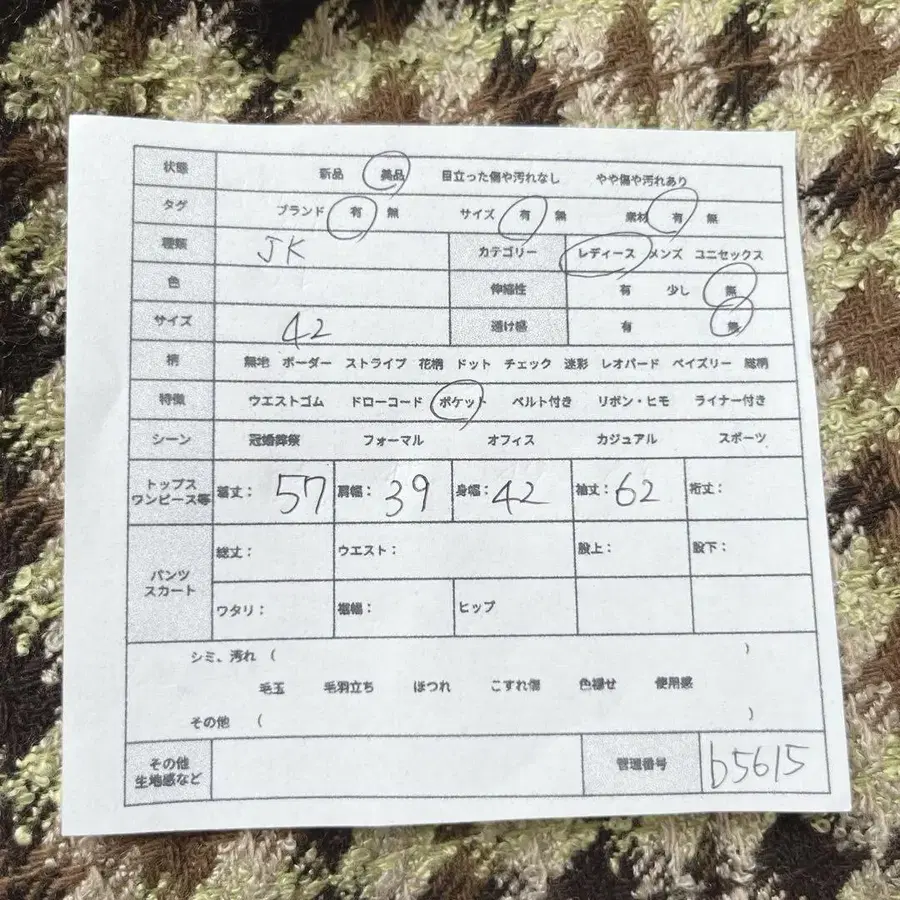 状態 新品 美品 目立った傷や汚れなし やや傷や汚れあり
タグ ブランド 有 無 サイズ 有 無 素材 有 無
種類 JK カテゴリー レディース メンズ ユニセックス
色 伸縮性 有 少し 無
サイズ 42 透け感 有 無
柄 無地 ボーダー ストライプ 花柄 ドット チェック 迷彩 レオパード ペイズリー 総柄
特徴 ウエストゴム ドローコード ポケット ベルト付き リボン・ヒモ ライナー付き
シーン 冠婚葬祭 フォーマル オフィス カジュアル スポーツ
トップス
ワンピース等 着丈: 57 肩幅: 39 身幅: 42 袖丈: 62 裄丈:
パンツ
スカート 総丈: ウエスト: 股上: 股下:
ワタリ: 裾幅: ヒップ
シミ、汚れ ( )
毛玉 毛羽立ち ほつれ こすれ傷 色褪せ 使用感
その他 ( )
その他
生地感など 管理番号 b5615